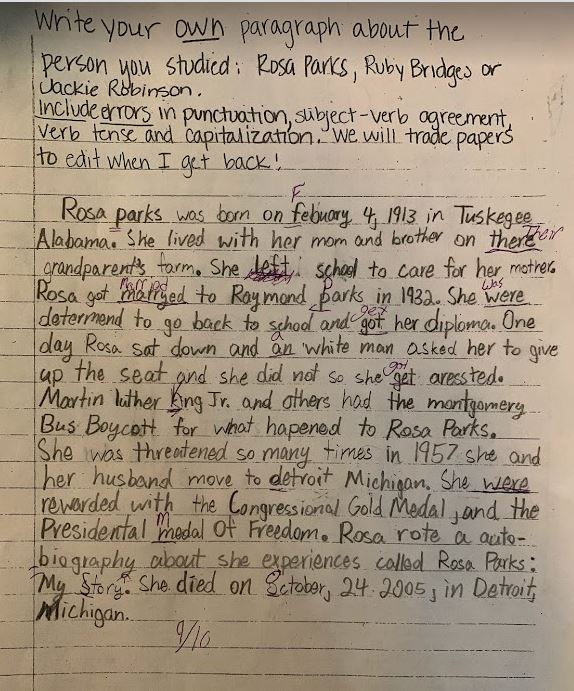 Write your own paragraph about the
person you studied: Rosa Parks, Ruby Bridges or
Jackie Robinson.
Include errors in punctuation, subject-verb agreement,
verb tense and capitalization. We will trade papers
to edit when I get back!
F
Rosa parks was born on febuary 4, 1913 in Tuskegee
Alabama. She lived with her mom and brother on there Their
grandparent's farm. She left school to care for her mother.
Married P was
Rosa got marryed to Raymond parks in 1932. She were
get
determend to go back to school and got her diploma. One
a
day Rosa sat down and an white man asked her to give
got
up the seat and she did not so she get aressted.
Martin luther king Jr. and others had the montgomery
Bus Boycott for what hapened to Rosa Parks.
She was threatened so many times in 1957 she and
her husband move to detroit Michigan. She were
rewarded with the Congressional Gold Medal, and the
M
Presidential medal Of Freedom. Rosa rote a auto-
biography about she experiences called Rosa Parks:
My Story. She died on October, 24 2005, in Detroit,
Michigan.
9/10